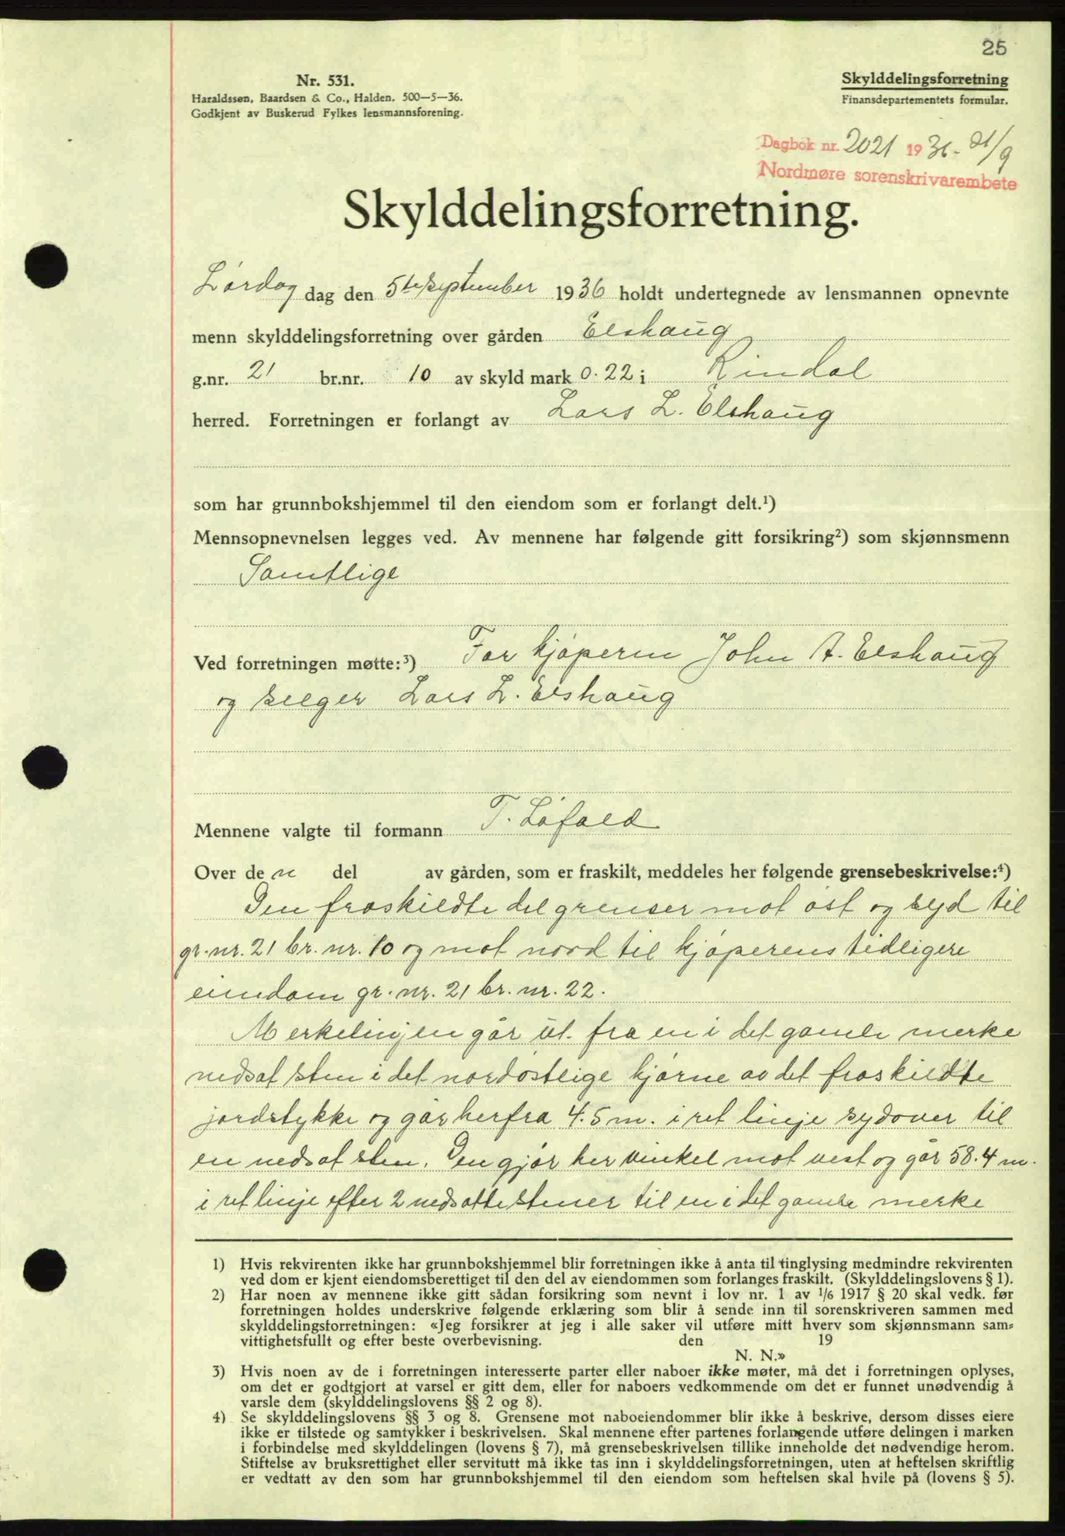 25
Nr. 531.
Haraldssen, Baardsen & Co., Halden. 500—5—36.
Godkjent av Buskerud Fylkes lensmannsforening.
Skylddelingsforretning
Finansdepartementets formular.
Dagbok nr. 2021 1936 - 21/9
Nordmøre sorenskrivarembete
Skylddelingsforretning.
Lørdag dag den 5te september 1936 holdt undertegnede av lensmannen opnevnte
menn skylddelingsforretning over gården Elshaug
g.nr. 21 br.nr. 10 av skyld mark 0.22 i Rindal
herred. Forretningen er forlangt av Lars L. Elshaug
som har grunnbokshjemmel til den eiendom som er forlangt delt.¹)
Mennsopnevnelsen legges ved. Av mennene har følgende gitt forsikring²) som skjønnsmenn
Samtlige
Ved forretningen møtte:³) For kjøperen John A. Elshaug
og selger Lars L. Elshaug
Mennene valgte til formann T. Løfald
Over de n del av gården, som er fraskilt, meddeles her følgende grensebeskrivelse:⁴)
Den fraskildte del grenser mot øst og syd til
gr.nr. 21 br. nr. 10 og mot nord til kjøperens tidligere
eiendom gr. nr. 21 br. nr. 22.
Merkelinjen går ut fra en i det gamle merke
nedsat sten i det nordøstlige hjørne av det fraskildte
jordstykke og går herfra 4.5 m. i ret linje sydover til
en nedsat sten. Den gjør her vinkel mot vest og går 58.4 m.
i ret linje efter 2 nedsatte stener til en i det gamle merke
1) Hvis rekvirenten ikke har grunnbokshjemmel blir forretningen ikke å anta til tinglysing medmindre rekvirenten
ved dom er kjent eiendomsberettiget til den del av eiendommen som forlanges fraskilt. (Skylddelingslovens § 1).
2) Har noen av mennene ikke gitt sådan forsikring som nevnt i lov nr. 1 av 1/6 1917 § 20 skal vedk. før
forretningen holdes underskrive følgende erklæring som blir å sende inn til sorenskriveren sammen med
skylddelingsforretningen: «Jeg forsikrer at jeg i alle saker vil utføre mitt hverv som skjønnsmann sam-
vittighetsfullt og efter beste overbevisning. den 19
N. N.»
3) Hvis noen av de i forretningen interesserte parter eller naboer ikke møter, må det i forretningen oplyses,
om det er godtgjort at varsel er gitt dem, eller for naboers vedkommende om det er funnet unødvendig å
varsle dem (skylddelingslovens §§ 2 og 8).
4) Se skylddelingslovens §§ 3 og 8. Grensene mot naboeiendommer blir ikke å beskrive, dersom disses eiere
ikke er tilstede og samtykker i beskrivelsen. Skal mennene efter partenes forlangende utføre delingen i marken
i forbindelse med skylddelingen (lovens § 7), må grensebeskrivelsen tillike inneholde det nødvendige herom.
Stiftelse av bruksrettighet eller servitutt må ikke tas inn i skylddelingsforretningen, uten at heftelsen skriftlig
er vedtatt av den som har grunnbokshjemmel til den eiendom som heftelsen skal hvile på (lovens § 5).